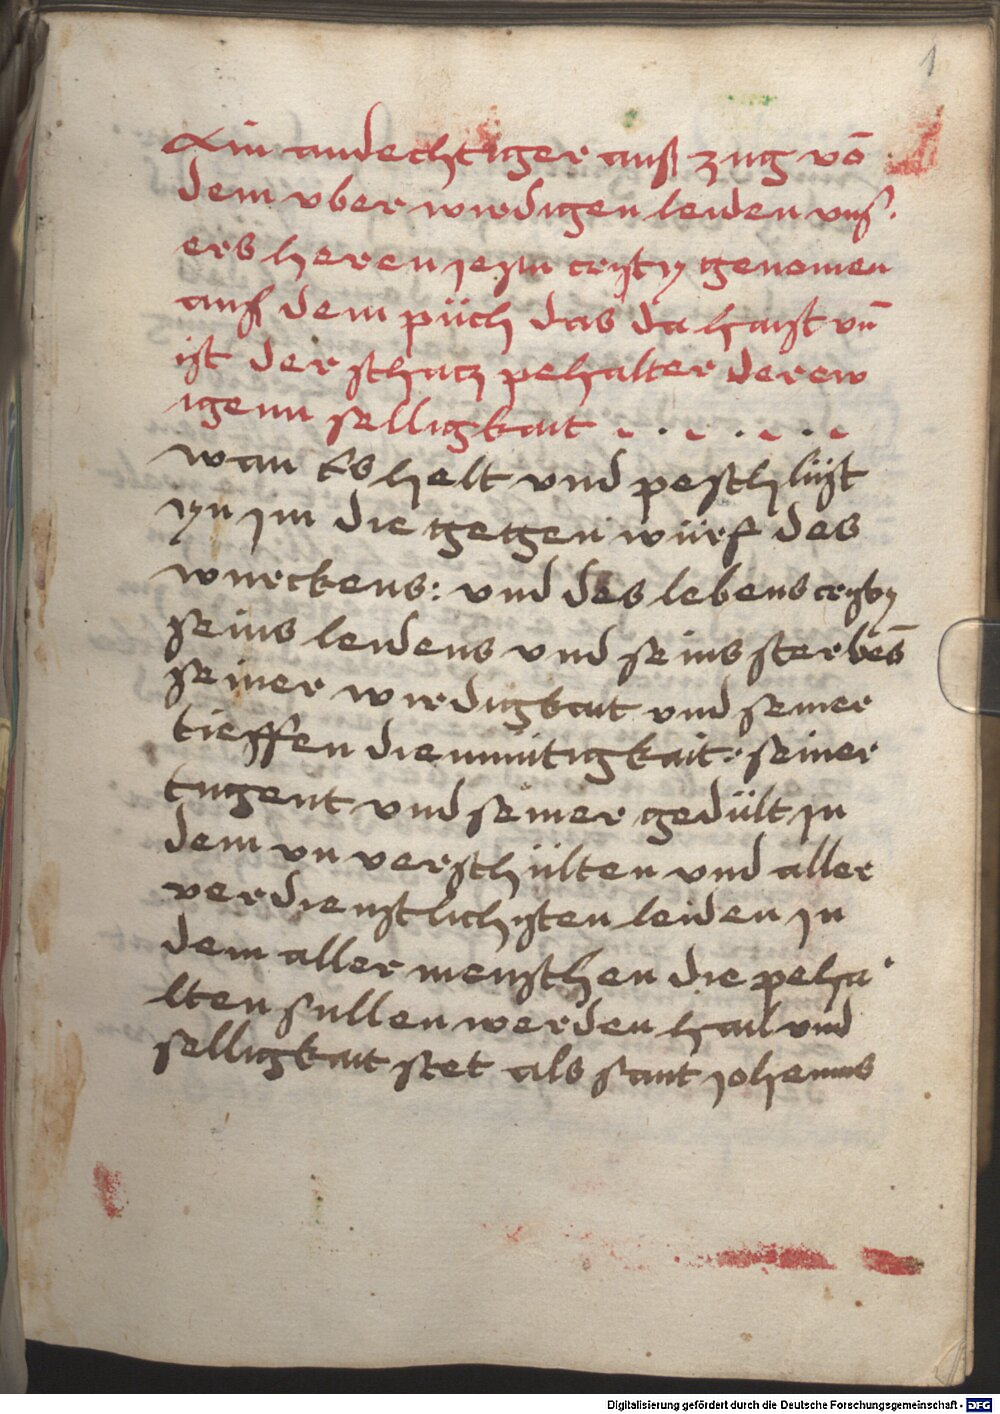 1
Ain andechtiger auß zug vō
dem vber wirdigen leiden vnß.
ers heren jesu cristy genomen
auß dem püch das da haist vn̄
ist der schatz pehalter der ew
igenn selligkait . . . . . .
wan Es helt vnd peschlüst
yn jm die gegen würf des
wurckens: vnd des lebens cristy
seins leidens vnd seins sterbēs
seiner wirdigkait vnd seiner
tieffen diemmütigkait: seiner
tugent vnd seiner gedült jn
dem vn verschülten vnd aller
verdienstlichsten leiden jn
dem aller menschen die peha
lten sullen werden hail vnd
selligkait stet als sant johenns
Digitalisierung gefördert durch die Deutsche Forschungsgemeinschaft - DFG